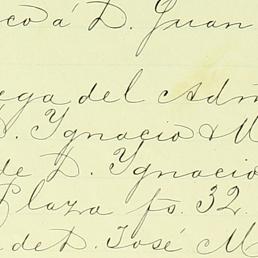 co á D. Juan
ega del Adm
D. Ygnacio M
de D. Ygnacio
Plaza fo. 32.
de D. José M